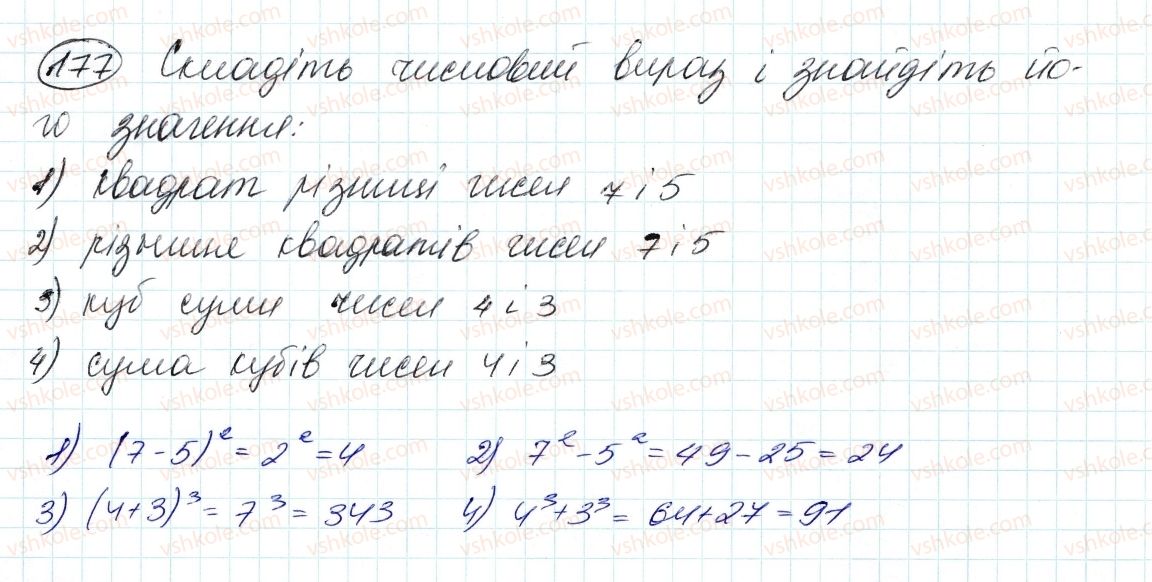 177 Складіть числовий вираз і знайдіть йо-
го значення:
1) квадрат різниці чисел 7 і 5
2) різниця квадратів чисел 7 і 5
3) куб суми чисел 4 і 3
4) сума кубів чисел 4 і 3
1) (7-5)² = 2² = 4 2) 7² - 5² = 49 - 25 = 24
3) (4+3)³ = 7³ = 343 4) 4³ + 3³ = 64 + 27 = 91
vshkole.com